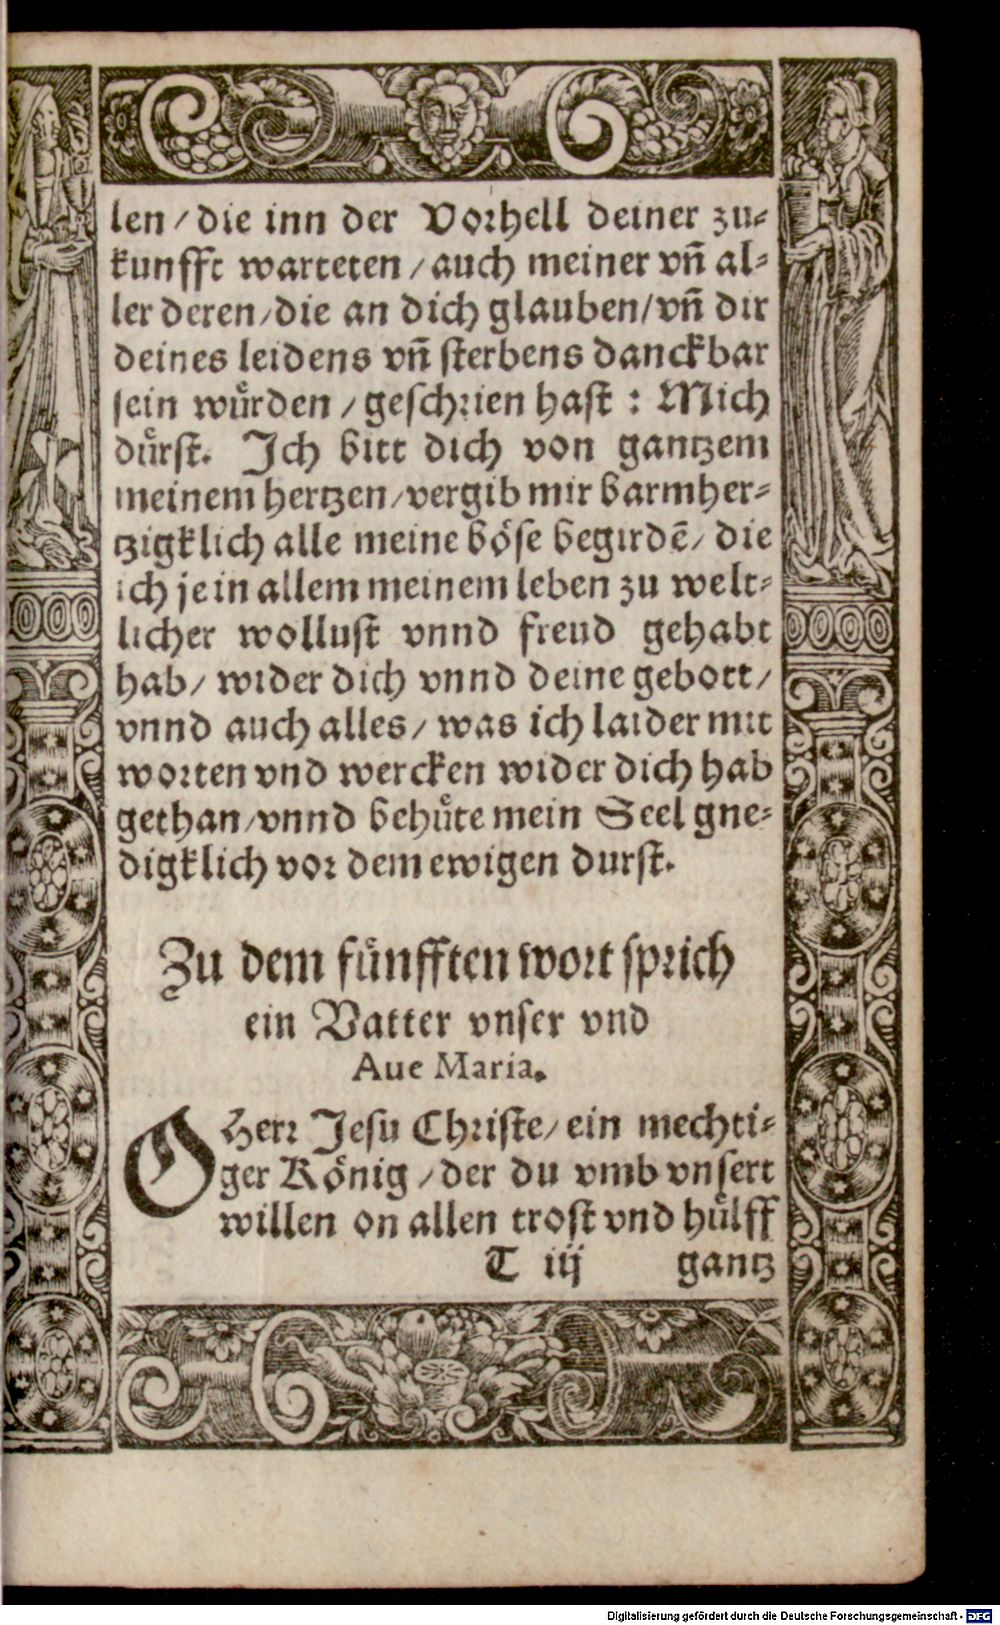 len / die inn der Vorhell deiner zu⸗
kunfft warteten / auch meiner vn̄ al⸗
ler deren / die an dich glauben / vn̄ dir
deines leidens vn̄ sterbens danckbar
sein wuͤrden / geschrien hast : Mich
duͤrst. Ich bitt dich von gantzem
meinem hertzen / vergib mir barmher⸗
tzigklich alle meine boͤse begirdē / die
ich je in allem meinem leben zu welt⸗
licher wollust vnnd freud gehabt
hab / wider dich vnnd deine gebott /
vnnd auch alles / was ich laider mit
worten vnd wercken wider dich hab
gethan / vnnd behuͤte mein Seel gne⸗
digklich vor dem ewigen durst.
Zu dem fuͤnfften wort sprich
ein Vatter vnser vnd
Aue Maria.
O Herr Jesu Christe / ein mechti⸗
ger Koͤnig / der du vmb vnsert
willen on allen trost vnd huͤlff
T iij gantz
Digitalisierung gefördert durch die Deutsche Forschungsgemeinschaft - DFG